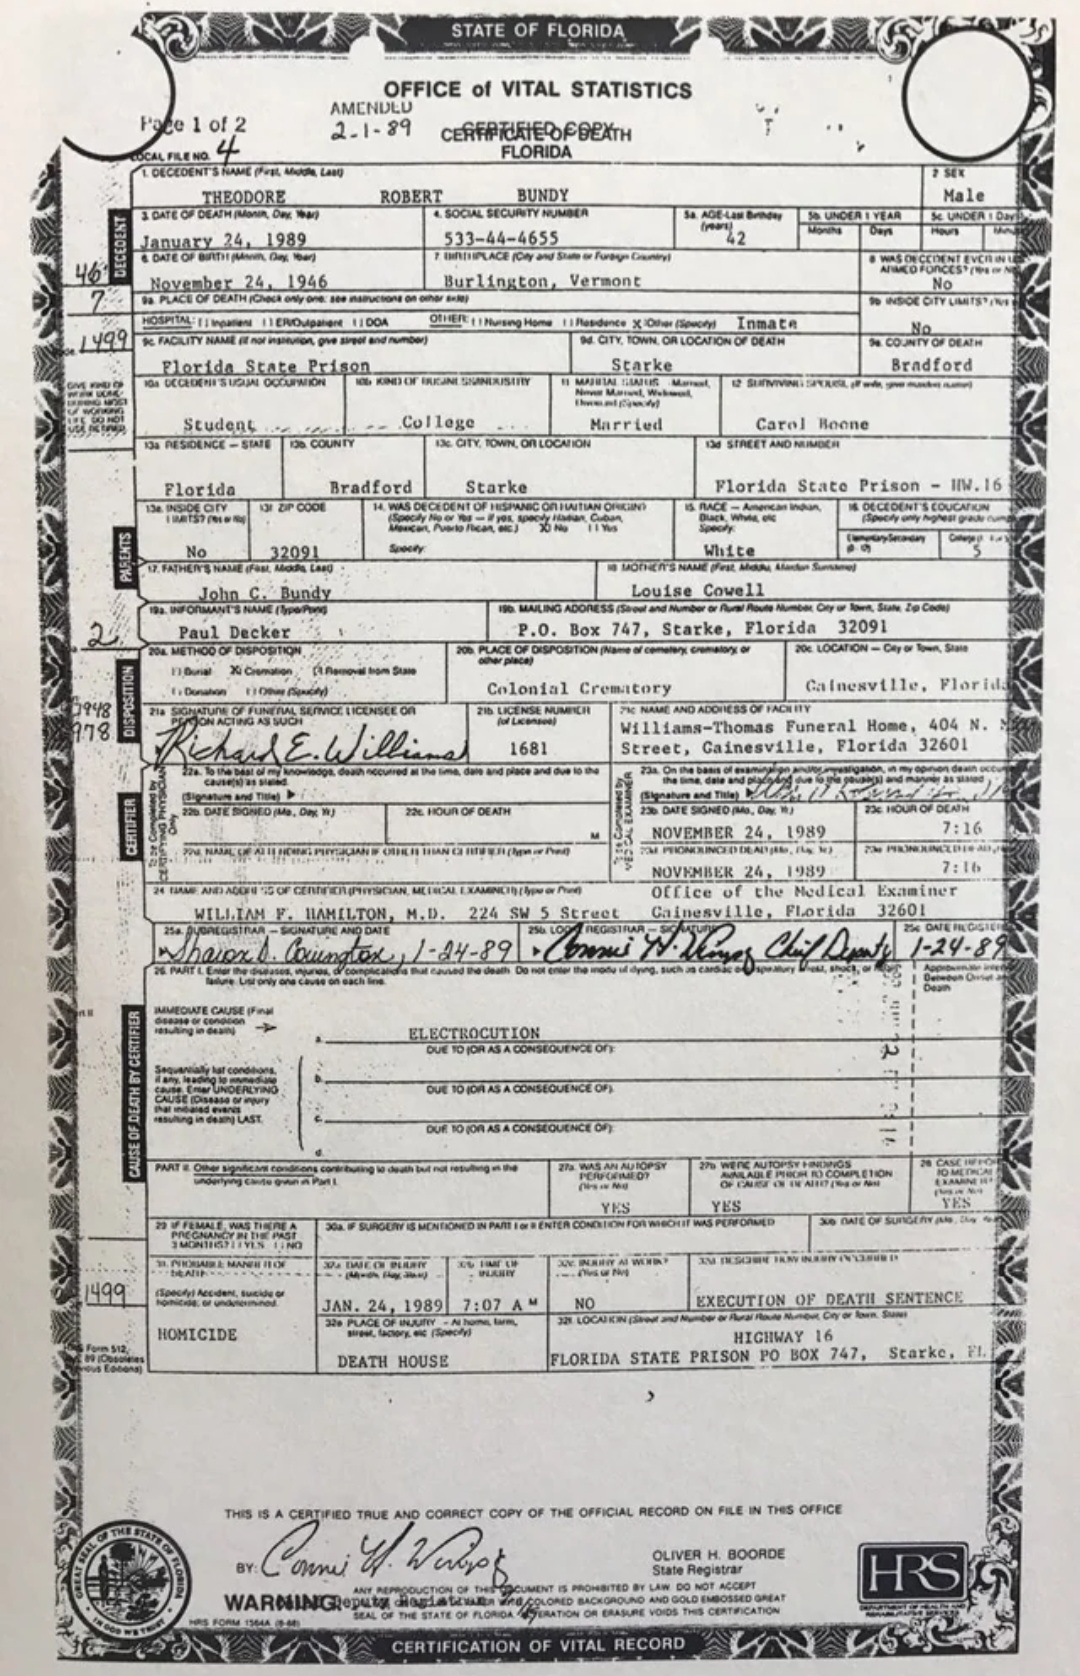 STATE OF FLORIDA
OFFICE of VITAL STATISTICS
AMENDED
Page 1 of 2 2-1-89 CERTIFIED COPY
CERTIFICATE OF DEATH
LOCAL FILE NO. 4 FLORIDA
1. DECEDENT'S NAME (First, Middle, Last) 2 SEX
THEODORE ROBERT BUNDY Male
3. DATE OF DEATH (Month, Day, Year) 4. SOCIAL SECURITY NUMBER 5a. AGE-Last Birthday (years) 5b. UNDER 1 YEAR 5c. UNDER 1 Day
Months Days Hours
January 24, 1989 533-44-4655 42
DECEDENT
46
6. DATE OF BIRTH (Month, Day, Year) 7. BIRTHPLACE (City and State or Foreign Country) 8 WAS DECEDENT EVER IN U
ARMED FORCES? (Yes or N
November 24, 1946 Burlington, Vermont No
7
9a. PLACE OF DEATH (Check only one: see instructions on other side) 9b INSIDE CITY LIMITS?
HOSPITAL: Inpatient ER/Outpatient DOA OTHER: Nursing Home Residence X Other (Specify) Inmate No
1499
9c. FACILITY NAME (If not institution, give street and number) 9d. CITY, TOWN, OR LOCATION OF DEATH 9e. COUNTY OF DEATH
Florida State Prison Starke Bradford
GIVE KIND OF
WORK DONE
DURING MOST
OF WORKING
LIFE DO NOT
USE RETIRED
10a DECEDENT'S USUAL OCCUPATION 10b. KIND OF BUSINESS/INDUSTRY 11 MARITAL STATUS - Married, Never Married, Widowed, Divorced (Specify) 12 SURVIVING SPOUSE (If wife, give maiden name)
Student College Married Carol Boone
13a RESIDENCE – STATE 13b. COUNTY 13c. CITY, TOWN, OR LOCATION 13d STREET AND NUMBER
Florida Bradford Starke Florida State Prison - HW.16
13e. INSIDE CITY LIMITS? (Yes or No) 13f. ZIP CODE 14. WAS DECEDENT OF HISPANIC OR HAITIAN ORIGIN? (Specify No or Yes – if yes, specify Haitian, Cuban, Mexican, Puerto Rican, etc.) X No Yes 15. RACE – American Indian, Black, White, etc 16 DECEDENT'S EDUCATION (Specify only highest grade
Specify: Specify: Elementary/Secondary College
No 32091 White 5
PARENTS
17. FATHER'S NAME (First, Middle, Last) 18 MOTHER'S NAME (First, Middle, Maiden Surname)
John C. Bundy Louise Cowell
19a. INFORMANT'S NAME (Type/Print) 19b. MAILING ADDRESS (Street and Number or Rural Route Number, City or Town, State, Zip Code)
2 Paul Decker P.O. Box 747, Starke, Florida 32091
20a. METHOD OF DISPOSITION 20b. PLACE OF DISPOSITION (Name of cemetery, crematory, or other place) 20c. LOCATION – City or Town, State
Burial X Cremation Removal from State
Donation Other (Specify) Colonial Crematory Gainesville, Florida
DISPOSITION
978
21a SIGNATURE OF FUNERAL SERVICE LICENSEE OR PERSON ACTING AS SUCH 21b. LICENSE NUMBER (of Licensee) 21c NAME AND ADDRESS OF FACILITY
Williams-Thomas Funeral Home, 404 N.
Richard E. Williams 1681 Street, Gainesville, Florida 32601
CERTIFIER
To be Completed by CERTIFYING PHYSICIAN Only
22a. To the best of my knowledge, death occurred at the time, date and place and due to the cause(s) as stated.
(Signature and Title)
To be Completed by MEDICAL EXAMINER
23a. On the basis of examination and/or investigation, in my opinion death occur
the time, date and place and due to the cause(s) and manner as stated
(Signature and Title)
22b. DATE SIGNED (Mo., Day, Yr.) 22c. HOUR OF DEATH 23b. DATE SIGNED (Mo., Day, Yr.) 23c. HOUR OF DEATH
M NOVEMBER 24, 1989 7:16
22d. NAME OF ATTENDING PHYSICIAN IF OTHER THAN CERTIFIER (Type or Print) 23d. PRONOUNCED DEAD (Mo., Day, Yr.) 23e PRONOUNCED DEAD
NOVEMBER 24, 1989 7:16
24 NAME AND ADDRESS OF CERTIFIER (PHYSICIAN, MEDICAL EXAMINER) (Type or Print) Office of the Medical Examiner
WILLIAM F. HAMILTON, M.D. 224 SW 5 Street Gainesville, Florida 32601
25a. SUBREGISTRAR – SIGNATURE AND DATE 25b. LOCAL REGISTRAR – SIGNATURE 25c DATE REGISTER
Sharon D. Covington, 1-24-89 Chief Deputy 1-24-89
26. PART I. Enter the diseases, injuries, or complications that caused the death. Do not enter the mode of dying, such as cardiac or respiratory arrest, shock, or heart
failure. List only one cause on each line.
Approximate
Between Onset and
Death
CAUSE OF DEATH BY CERTIFIER
IMMEDIATE CAUSE (Final
disease or condition
resulting in death)
a. ELECTROCUTION
DUE TO (OR AS A CONSEQUENCE OF):
Sequentially list conditions,
if any, leading to immediate
cause. Enter UNDERLYING
CAUSE (Disease or injury
that initiated events
resulting in death) LAST.
b.
DUE TO (OR AS A CONSEQUENCE OF):
c.
DUE TO (OR AS A CONSEQUENCE OF):
d.
PART II. Other significant conditions contributing to death but not resulting in the underlying cause given in Part I. 27a. WAS AN AUTOPSY PERFORMED? (Yes or No) 27b WERE AUTOPSY FINDINGS AVAILABLE PRIOR TO COMPLETION OF CAUSE OF DEATH? (Yes or No) 28 CASE
TO MEDICAL
EXAMINER?
YES YES YES
29 IF FEMALE, WAS THERE A PREGNANCY IN THE PAST 3 MONTHS? YES NO 30a. IF SURGERY IS MENTIONED IN PART I or II ENTER CONDITION FOR WHICH IT WAS PERFORMED 30b DATE OF SURGERY (Mo., Day,
31. PROBABLE MANNER OF DEATH 32a DATE OF INJURY (Month, Day, Year) 32b TIME OF INJURY 32c INJURY AT WORK? (Yes or No) 32d DESCRIBE HOW INJURY OCCURRED
1499 (Specify) Accident, suicide or homicide, or undetermined. JAN. 24, 1989 7:07 A M NO EXECUTION OF DEATH SENTENCE
HOMICIDE 32e PLACE OF INJURY – At home, farm, street, factory, etc (Specify) 32f. LOCATION (Street and Number or Rural Route Number, City or Town, State)
HIGHWAY 16
DEATH HOUSE FLORIDA STATE PRISON PO BOX 747, Starke, FL
Form 512,
89 (Obsoletes
Editions)
THIS IS A CERTIFIED TRUE AND CORRECT COPY OF THE OFFICIAL RECORD ON FILE IN THIS OFFICE
GREAT SEAL OF THE STATE OF FLORIDA
IN GOD WE TRUST
BY:
OLIVER H. BOORDE
State Registrar
HRS
DEPARTMENT OF HEALTH AND
REHABILITATIVE SERVICES
WARNING: Deputy Registrar
ANY REPRODUCTION OF THIS DOCUMENT IS PROHIBITED BY LAW. DO NOT ACCEPT
COLORED BACKGROUND AND GOLD EMBOSSED GREAT
SEAL OF THE STATE OF FLORIDA. ALTERATION OR ERASURE VOIDS THIS CERTIFICATION
HRS FORM 1564A (8-88)
CERTIFICATION OF VITAL RECORD